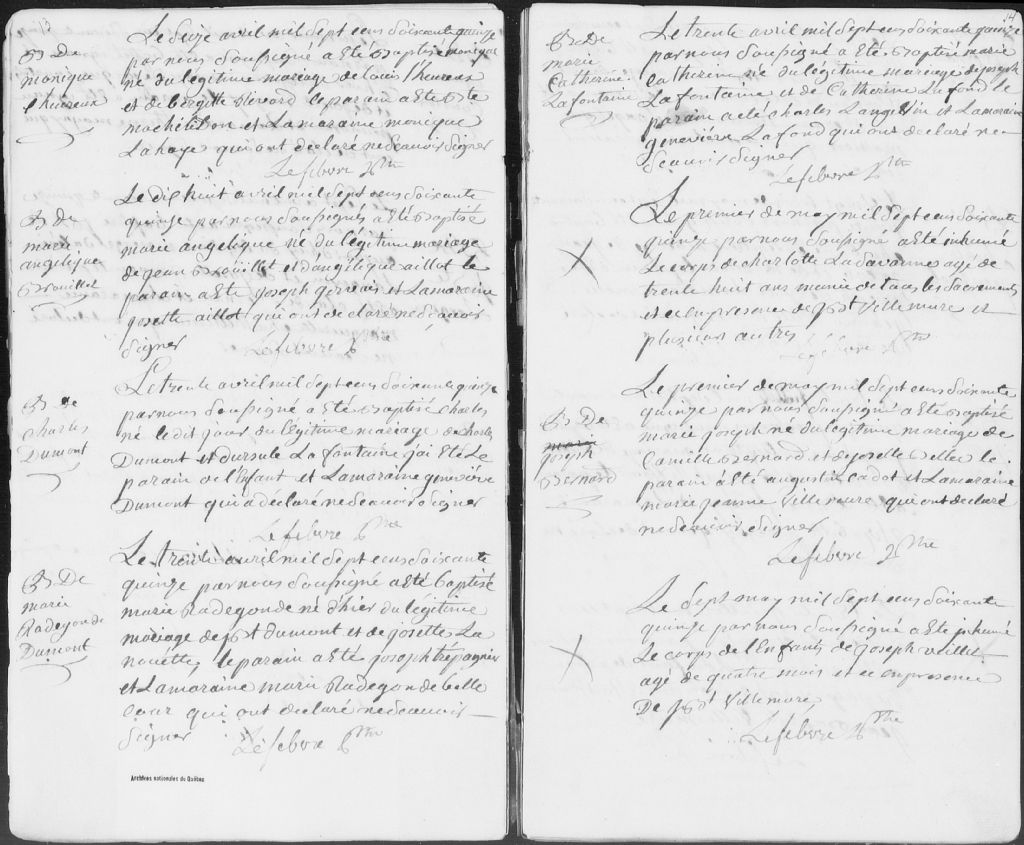 13
Le seize avril mil sept cens soixante quinze
B De
monique
l'heureux
par nous soussigné a Eté Baptisé monique
né du légitime mariage de Louis l'heureux
et de brigitte Rivard le parain a Eté
et Lamaraine monique
Lahaye qui ont declaré ne scavoir signer
Lefebvre ptre
Le dix huit avril mil sept cens soixante
B De
marie
angelique
Brouillet
quinze par nous soussignés a Eté Baptisé
marie angelique né du légitime mariage
de jean Brouillet et d'angélique aillot le
parain a Eté joseph gervais et Lamaraine
josette aillot qui ont declaré ne scavoir
signer Lefebvre ptre
Le trente avril mil sept cens soixante quinze
B De
charles
Dumont
par nous soussigné a Eté Baptisé charles
né le dit jour du légitime mariage de charles
Dumont et d'ursule La fontaine j'ai Eté Le
parain de l'Enfant et Lamaraine geneviéve
Dumont qui a declaré ne scavoir signer
Lefebvre ptre
Le trente avril mil sept cens soixante
B De
marie
Radegonde
Dumont
quinze par nous soussigné a Eté baptisé
marie Radegonde né d'hier du légitime
mariage de jbt dumont et de josette La
nouette, le parain a Eté joseph trepagnier
et Lamaraine marie Radegonde belle
cour qui ont declaré ne scavoir
signer Lefebvre ptre
Archives nationales du Québec
14
Le trente avril mil sept cens soixante quinze
B De
marie
Catherine
Lafontaine
par nous soussigné a Eté Baptisé marie
catherine né du légitime mariage de joseph
La fontaine et de Catherine La fond le
parain a eté charles Langevin et Lamaraine
geneviére La fond qui ont declaré ne
scavoir signer
Lefebvre ptre
Le premier de may mil sept cens soixante
quinze par nous soussigné a Eté inhumé
Le corps de charlotte Lasavanne agé de
trente huit ans munie de tous les sacrements
et ce en presence de jbt Villemure et
plusieurs autres
Lefebvre ptre
Le premier de may mil sept cens soixante
B De
marie
joseph
Bernard
quinze par nous soussigné a Eté Baptisé
marie joseph né du légitime mariage de
Camille Bernard et de joselle Belle le
parain a Eté augustin Cadot et Lamaraine
marie jeanne Villemure qui ont declaré
ne scavoir signer
Lefebvre ptre
Le sept may mil sept cens soixante
quinze par nous soussigné a Eté inhumé
Le corps de l'Enfant de joseph
agé de quatre mois et ce en presence
De jbt Villemure
Lefebvre ptre